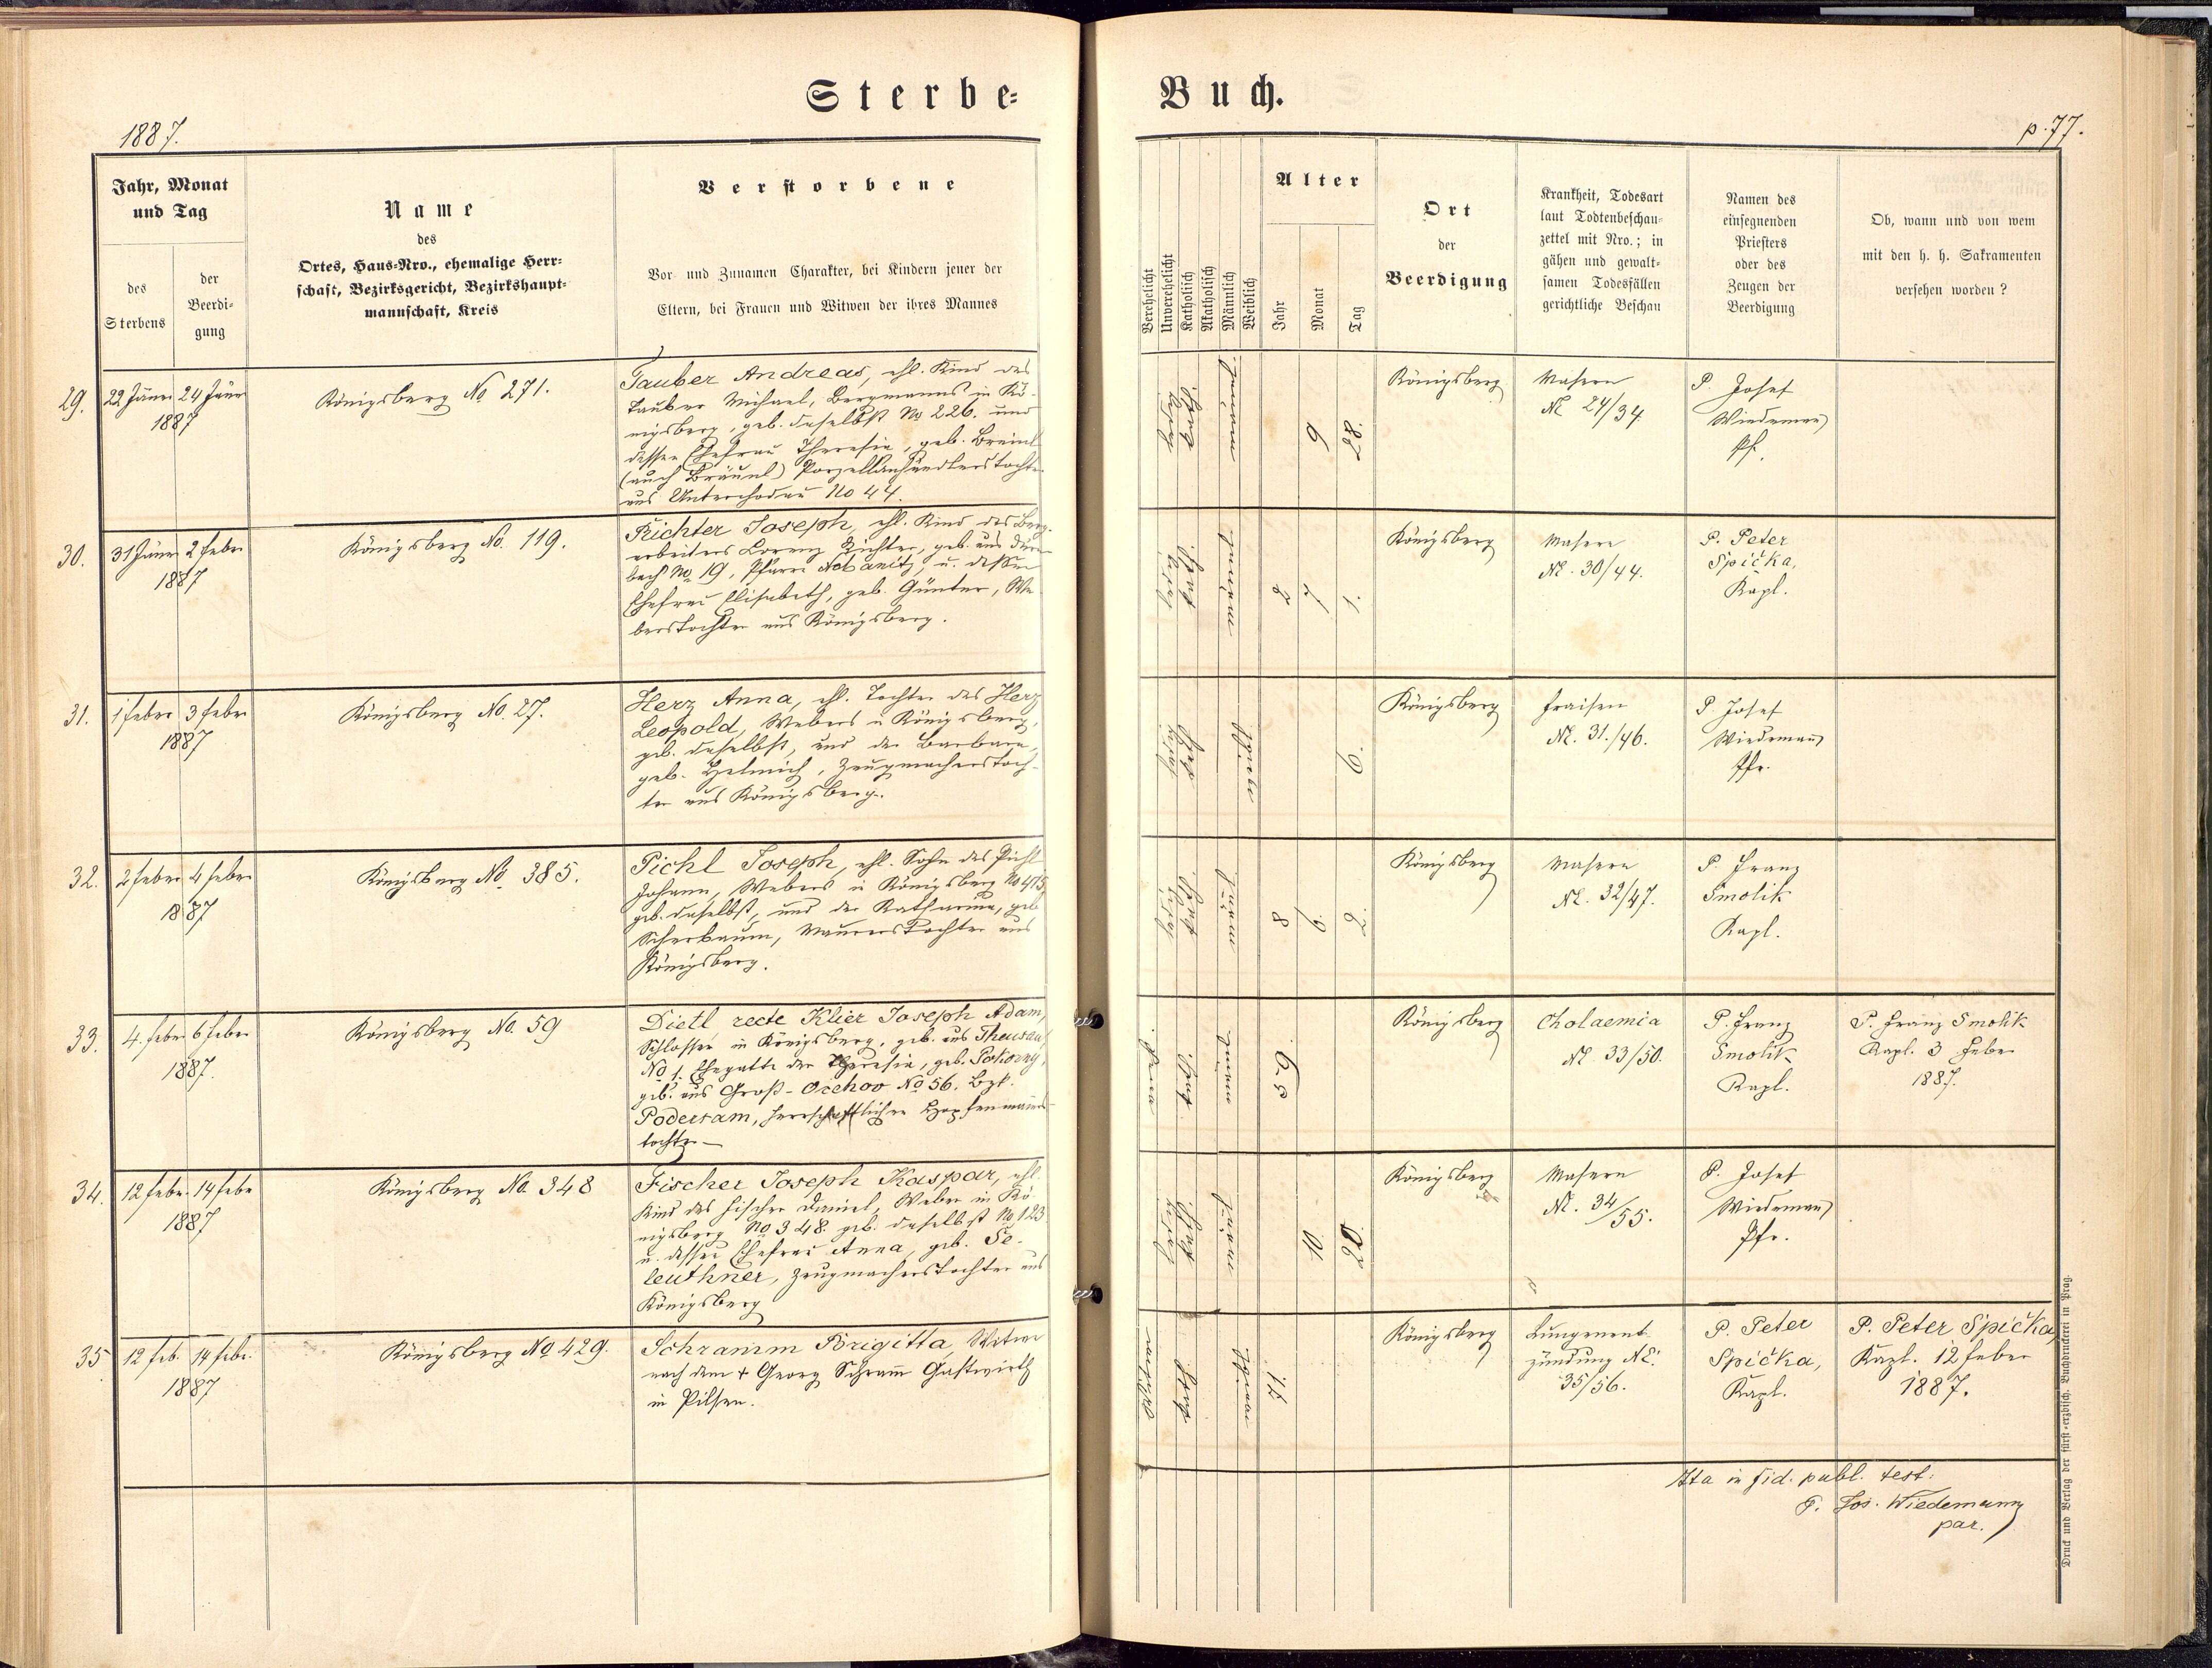 Sterbe-
Buch.
1887.
p. 77.
Jahr, Monat
und Tag
des
Sterbens
der
Beerdi-
gung
Name
des
Ortes, Haus-Nro., ehemalige Herr-
schaft, Bezirksgericht, Bezirkshaupt-
mannschaft, Kreis
Verstorbene
Vor- und Zunamen Charakter, bei Kindern jener der
Eltern, bei Frauen und Witwen der ihres Mannes
Verehelicht
Unverehelicht
Katholisch
Akatholisch
Männlich
Weiblich
Alter
Jahr
Monat
Tag
Ort
der
Beerdigung
Krankheit, Todesart
laut Todtenbeschau-
zettel mit Nro.; in
gähen und gewalt-
samen Todesfällen
gerichtliche Beschau
Namen des
einsegnenden
Priesters
oder des
Zeugen der
Beerdigung
Ob, wann und von wem
mit den h. h. Sakramenten
versehen worden?
29.
22 Jäner 24 Jäner
1887
Königsberg No 271.
Tauber Andreas, ehl. Kind des
Tauber Michael, Bergmanns in Kö-
nigsberg, geb. daselbst No 226. und
dessen Ehefrau Theresia, geb. Breinl
(auch Bräunl) Porzellanhändlerstochter
aus Unterchodau No 44.
6
Königsberg
Masern
Nr 24/34.
P. Josef
Wiedemann
Pf.
30.
31 Jäner 2 Feber
1887
Königsberg No. 119.
Richter Joseph, ehl. Kind des Berg-
arbeiters Lorenz Richter, geb. aus Dürn-
bach No 19, Pfarre Nebanitz, u. dessen
Ehefrau Elisabeth, geb. Günter, We-
berstochter aus Königsberg.
2
7
1.
Königsberg
Masern
Nr. 30/44.
P. Peter
Spička,
Kapl.
31.
1 Feber 3 Feber
1887
Königsberg No. 27.
Herz Anna, ehl. Tochter des Herz
Leopold, Webers in Königsberg,
geb. daselbst, und der Barbara,
geb. Helmich, Zeugmacherstoch-
ter aus Königsberg.
Königsberg
Fraisen
Nr. 31./46.
P. Josef
Wiedemann
Pfr.
32.
2 Feber 4 Feber
1887
Königsberg No. 385.
Pichl Joseph, ehl. Sohn des Pichl
Johann, Webers in Königsberg No 415
geb. daselbst, und der Katharina, geb
Scherbaum, Maurerstochter aus
Königsberg.
8
6.
2.
Königsberg
Masern
Nr. 32/47.
P. Franz
Smolik
Kapl.
33.
4. Feber 6 Feber
1887.
Königsberg No. 59
Dietl recte Klier Joseph Adam,
Schlosser in Königsberg, geb. aus Theusau
No 1. Ehegatte der Theresia, geb. Pokorny,
geb. aus Groß-Orehov No 56. Bzk.
Podersam, herrschaftlichen
tochter
65
Königsberg
Cholaemia
Nr 33/50.
P. Franz
Smolik
Kapl.
P. Franz Smolik
Kapl. 3 Feber
1887.
34.
12 Feber 14 Feber
1887
Königsberg No. 348
Fischer Joseph Kaspar, ehl.
Kind des Fischer Daniel, Weber in Kö-
nigsberg No 348. geb. daselbst No 123
u. dessen Ehefrau Anna, geb. Se-
leuthner, Zeugmacherstochter aus
Königsberg
10
20.
Königsberg
Masern
Nr. 34/55.
P. Josef
Wiedemann
Pfr.
35
12 Feb. 14 Feber.
1887
Königsberg No 429.
Schramm Brigitta, Witwe
nach dem + Georg Schram̄ Gastwirth
in Pilsen.
Königsberg
Lungenent-
zündung Nr.
35/56.
P. Peter
Spička,
Kapl.
P. Peter Spička,
Kapl. 12 Feber
1887.
Ita in fid. publ. test:
P. Jos. Wiedemann
par.
Druck und Verlag der fürst-erzbisch. Buchdruckerei in Prag.